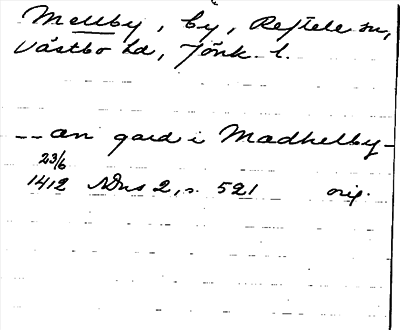 Mellby, by, Reftele sn,
Västbo hd, Jönk. l.
-- an gard i Madhelby -
23/6
1412 SDns 2, s. 521 orig.